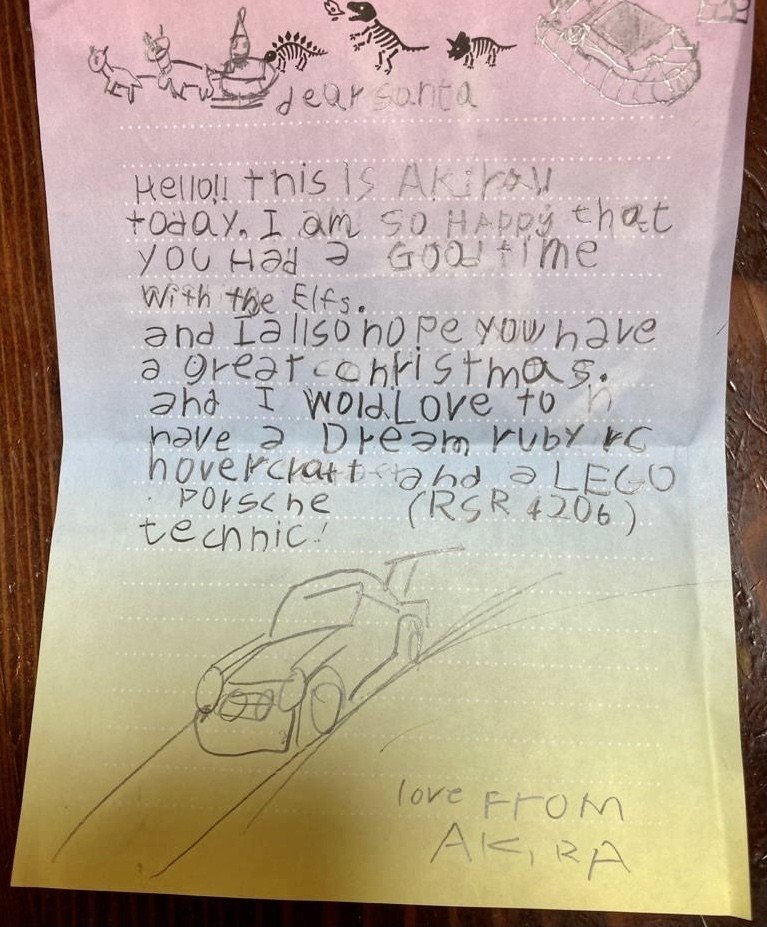 dear santa
Hello!! this is Akira!!
today. I am so HAppy that
you Had a Good time
With the Elfs.
and I allso hope you have
a great christmas.
and I wold Love to h
have a Dream ruby rc
hovercraft and a LEGO
Porsche (RSR 4206)
technic!
love From
AKiRA